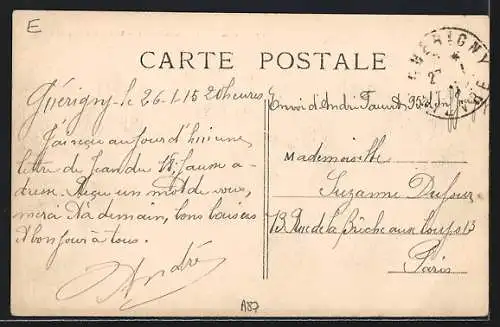 E
CARTE POSTALE
GUÉRIGNY
Guérigny-le 26-1-15 20 heures
J'ai reçu aujourd'hui une
lettre de Jean du 17. fausse a-
dresse. Reçu un mot de vous,
merci. A demain, bons baisers
A bonjour à tous.
André
Envoi d'André Faucot
Mademoiselle
Suzanne Dufour
13 Rue de la Brèche aux Loups 13
Paris
A87